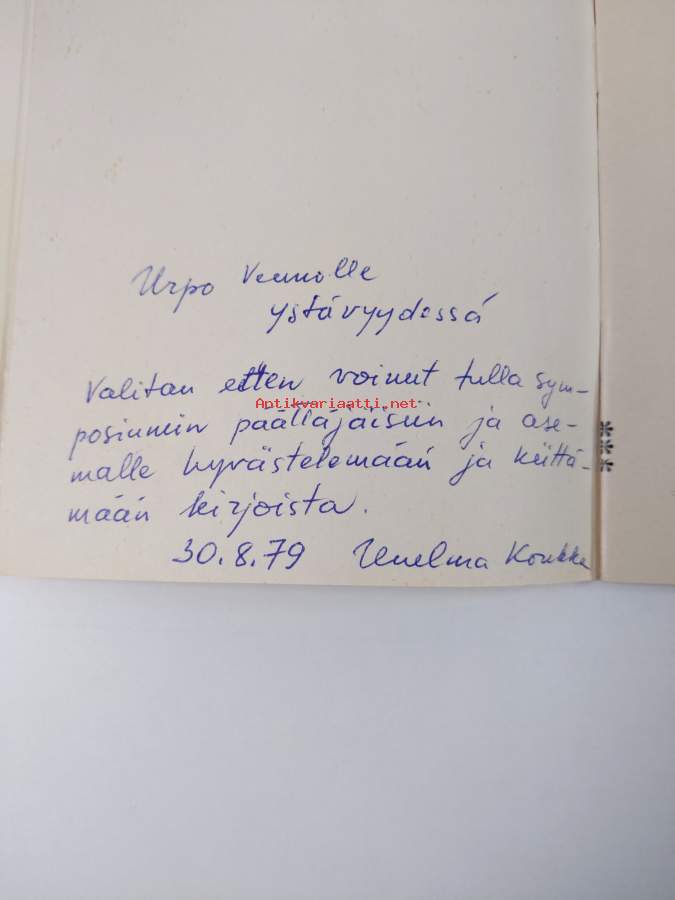 Urpo Vennolle
ystävyydessä
Valitan etten voinut tulla sym-
posiumin päättäjäisiin ja ase-
malle hyvästelemään ja kiittä-
mään kirjoista.
30.8.79 Unelma Konkka
Aptikvariaatti.net